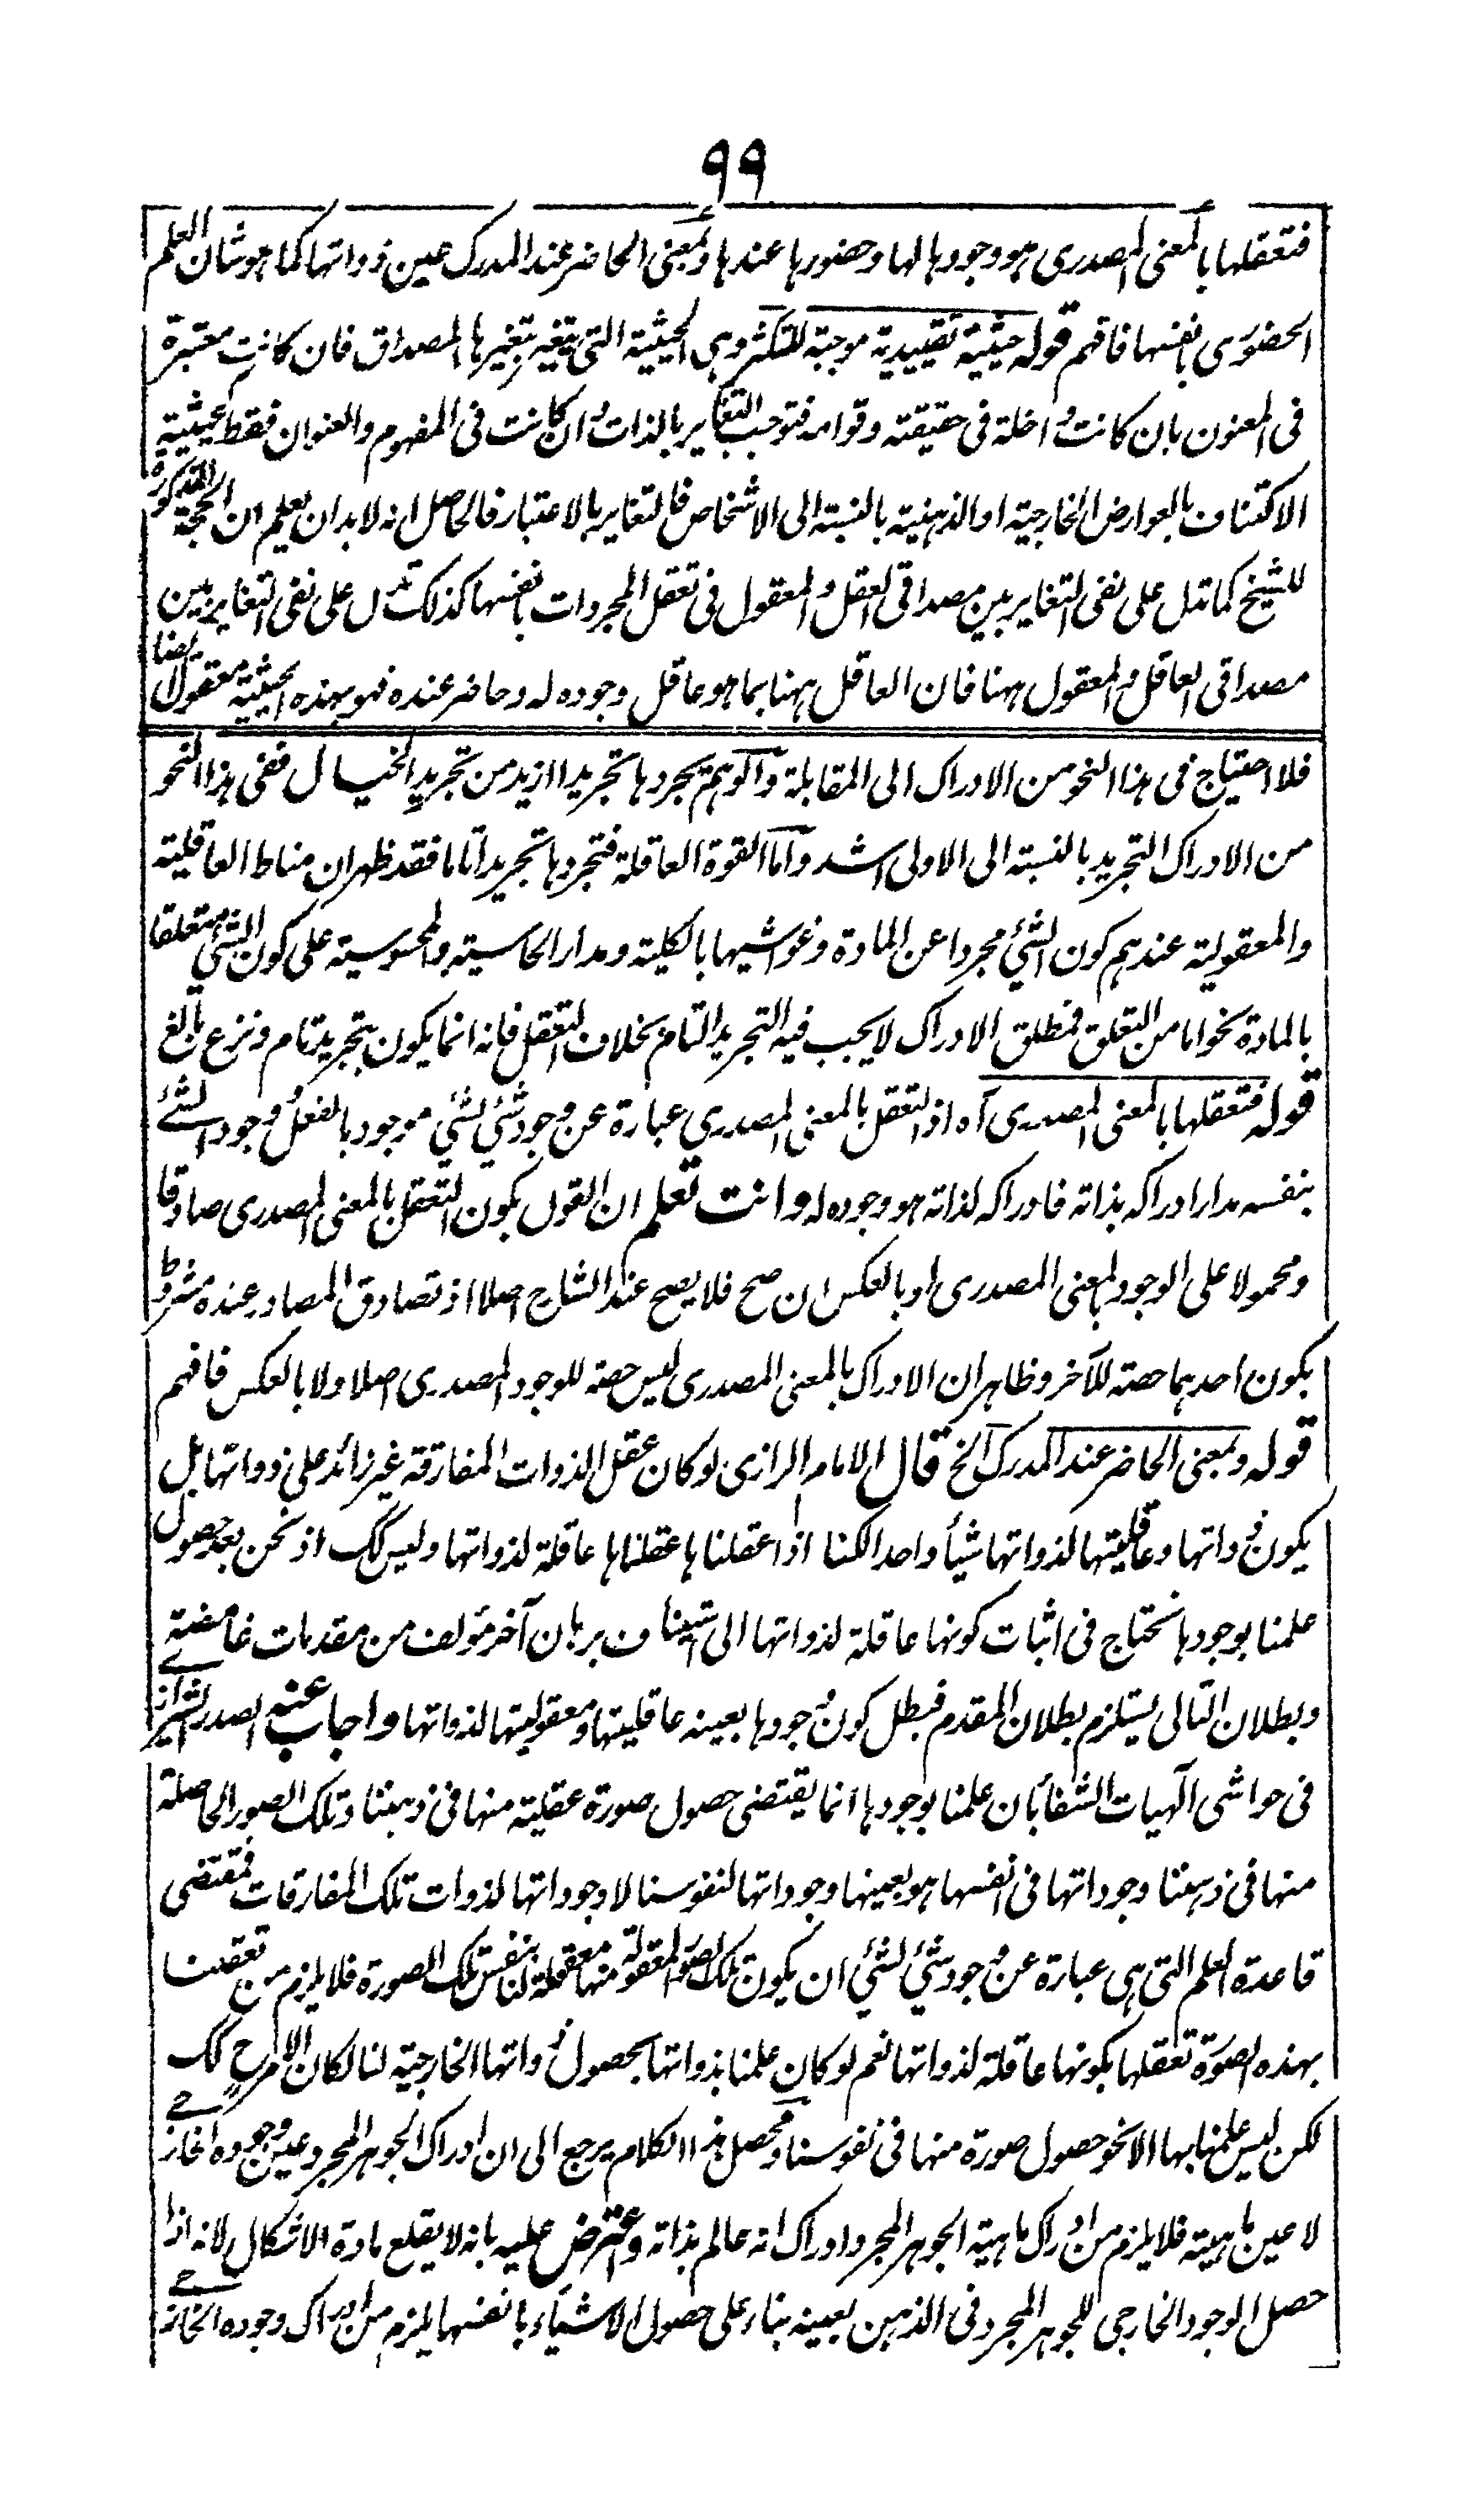 ۹۹
فتعقلها بالمعنى المصدرى هو وجودها لها وحضورها عندها وبمعنى الحاضر عند المدرك عين ذواتها كما هو شان العلم
الحضورى بانفسها فافهم قوله حيثية تقييدية موجبة للتكثر وهى الحيثية التى يتغير بتغيرها المصداق فان كانت معتبرة
فى المعنون بان كانت داخلة فى حقيقته وقوامه فتوجب التغاير بالذات وان كانت فى المفهوم والعنوان فقط كحيثية
الاكتناف بالعوارض الخارجية او الذهنية بالنسبة الى الاشخاص فالتغاير بالاعتبار فالحاصل انه لابد ان يعلم ان الحجة المذكورة
للشيخ كما تدل على نفى التغاير بين مصداقى العقل والمعقول فى تعقل المجردات بانفسها كذلك تدل على نفى التغاير بين
مصداقى العاقل والمعقول ههنا فان العاقل ههنا بما هو عاقل وجوده له وحاضر عنده فهو بهذه الحيثية معقول ايضا
فلا احتياج فى هذا النحو من الادراك الى المقابلة والوهم يجردها تجريدا ازيد من تجريد الخيال ففى هذا النحو
من الادراك التجريد بالنسبة الى الاولى اشد واما القوة العاقلة فتجردها تجريدا تاما فقد ظهر ان مناط العاقلية
والمعقولية عندهم كون الشئ مجردا عن المادة وغواشيها بالكلية ومدار الحاسية والمحسوسية على كون الشئ متعلقا
بالمادة نحوا ما من التعلق فمطلق الادراك لا يجب فيه التجريد التام بخلاف التعقل فانه انما يكون بتجريد تام ونزع بالغ
قوله فتعقلها بالمعنى المصدرى آه اذ التعقل بالمعنى المصدري عبارة عن وجود شئ لشئ موجود بالفعل ووجود الشئ
بنفسه مدار ادراكه بذاته فادراكه لذاته هو وجوده له وانت تعلم ان القول بكون التعقل بالمعنى المصدرى صادقا
ومحمولا على الوجود بالمعنى المصدرى او بالعكس ان صح فلا يصح عند الشارح اصلا اذ تصادق المصادر عنده مشروط
بكون احدهما حصة للآخر وظاهر ان الادراك بالمعنى المصدرى ليس حصة للوجود المصدرى اصلا ولا بالعكس فافهم
قوله وبمعنى الحاضر عند المدرك الخ قال الامام الرازى لو كان عقل الذوات المفارقة غير زائد على ذواتها بل
يكون ذواتها وعاقليتها لذواتها شيأ واحدا لكنا اذا عقلناها عقلناها عاقلة لذواتها وليس كك اذ نحن بعد حصول
علمنا بوجودها نحتاج فى اثبات كونها عاقلة لذواتها الى استيناف برهان آخر مؤلف من مقدمات غامضة
وبطلان التالى يستلزم بطلان المقدم فبطل كون وجودها بعينه عاقليتها ومعقوليتها لذواتها واجاب عنه الصدر الشيرازى
فى حواشى آلهيات الشفا بان علمنا بوجودها انما يقتضى حصول صورة عقلية منها فى ذهننا وتلك الصور الحاصلة
منها فى ذهننا وجوداتها فى انفسها هو بعينها وجوداتها لنفوسنا لا وجوداتها لذوات تلك المفارقات فمقتضى
قاعدة العلم التى هى عبارة عن وجود شئ لشئ ان يكون تلك الصور المعقولة منها معقولة لنا بنفس تلك الصورة فلا يلزم من تعقلنا
بهذه الصورة تعقلها بكونها عاقلة لذواتها نعم لو كان علمنا بذواتها بحصول ذواتها الخارجية لنا لكان الامر ح كك
لكن ليس علمنا بها الا نحو حصول صورة منها فى نفوسنا ومحصل هذا الكلام يرجع الى ان ادراك الجوهر المجرد عين وجوده الخارجى
لا عين ماهيته فلا يلزم من ادراك ماهية الجوهر المجرد ادراك انه عالم بذاته واعترض عليه بانه لا يقلع مادة الاشكال لانه اذا
حصل الوجود الخارجى للجوهر المجرد فى الذهن بعينه بناء على حصول الاشياء بانفسها يلزم من ادراك وجوده الخارجى